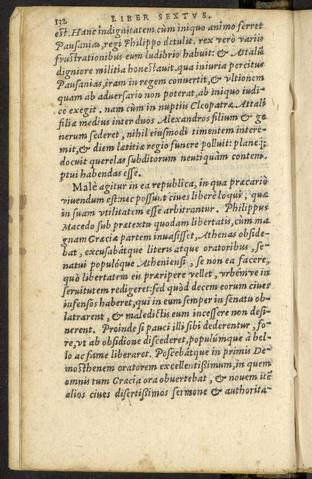 132 LIBER SEXTVS.
est. Hanc indignitatem cùm iniquo animo ferret
Pausanias, regi Philippo detulit. rex verò variis
frustrationibus eum ludibrio habuit: & Attalū
digniore militia honestauit. qua iniuria percitus
Pausanias, iram in regem conuertit, & vltionem
quam ab aduersario non poterat, ab iniquo iudi-
ce exegit. nam cùm in nuptiis Cleopatræ Attali
filia medius inter duos Alexandros filium & ge
nerum sederet, nihil eiusmodi timentem intere-
mit, & diem lætitiæ regio funere polluit: planeq;
docuit querelas subditorum neutiquàm contem-
ptui habendas esse.
Malè agitur in ea republica, in qua precariò
viuendum est: nec possunt ciues liberè loqui, quæ
in suam vtilitatem esse arbitrantur. Philippus
Macedo sub prætextu quodam libertatis, cum ma
gnam Græciæ partem inuasisset, Athenas obside-
bat, excusabátque literis atque oratoribus, se-
natui populóque Atheniensi, se non ea facere,
quò libertatem eis præripere vellet, vrbémve in
seruitutem redigeret: sed quòd eorum ciues
infensos haberet, qui in eum semper in senatu ob-
latrarent, & maledictis eum incessere non desi-
nerent. Proinde si pauci illi sibi dederentur, fo-
re, vt ab obsidione discederet, populúmque à bel-
lo ac fame liberaret. Poscebátque in primis De-
mosthenem oratorem excellentissimum, in quem
omnis tum Græcia ora obuertebat, & nouem itē
alios ciues disertissimos sermone & authorita-